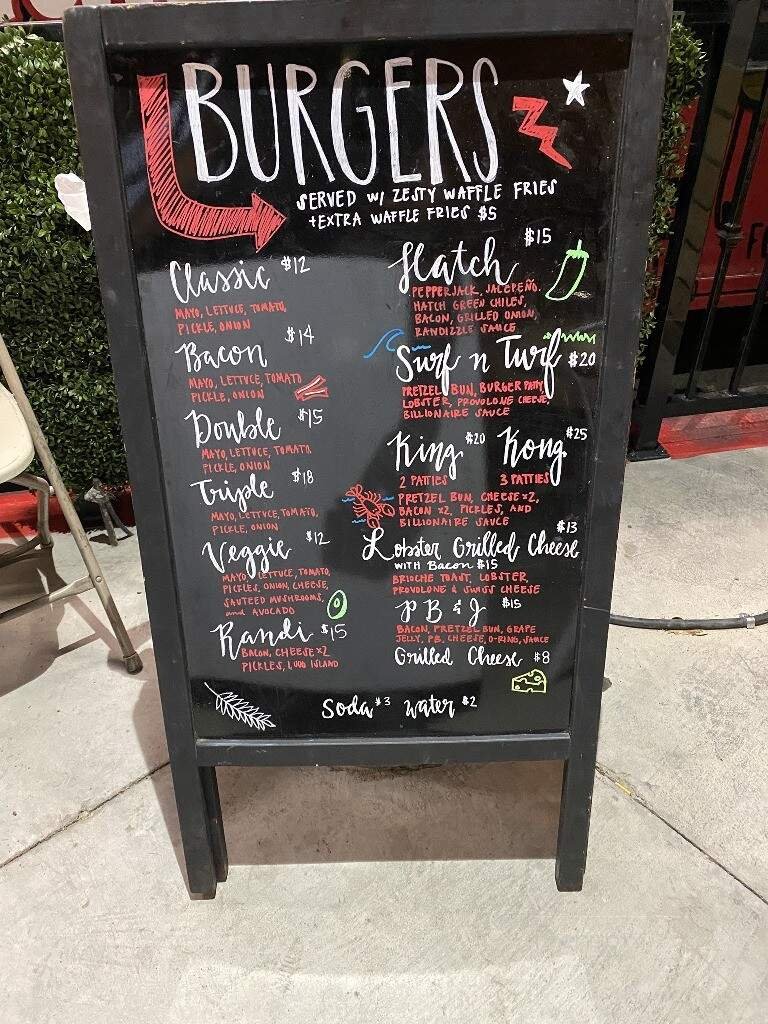 BURGERS
SERVED W/ ZESTY WAFFLE FRIES
+EXTRA WAFFLE FRIES $5
Classic $12
MAYO, LETTUCE, TOMATO,
PICKLE, ONION
Bacon $14
MAYO, LETTUCE, TOMATO
PICKLE, ONION
Double $15
MAYO, LETTUCE, TOMATO,
PICKLE, ONION
Triple $18
MAYO, LETTUCE, TOMATO,
PICKLE, ONION
Veggie $12
MAYO, LETTUCE, TOMATO,
PICKLES, ONION, CHEESE,
SAUTEED MUSHROOMS,
and AVOCADO
Randi $15
BACON, CHEESE X2
PICKLES, 1,000 ISLAND
Hatch $15
PEPPERJACK, JALEPEÑO,
HATCH GREEN CHILES,
BACON, GRILLED ONION,
RANDIZZLE SAUCE
Surf n Turf $20
PRETZEL BUN, BURGER PATTY,
LOBSTER, PROVOLONE CHEESE,
BILLIONAIRE SAUCE
King $20 Kong $25
2 PATTIES 3 PATTIES
PRETZEL BUN, CHEESE X2,
BACON X2, PICKLES, AND
BILLIONAIRE SAUCE
Lobster Grilled Cheese $13
WITH Bacon $15
BRIOCHE TOAST, LOBSTER,
PROVOLONE & SWISS CHEESE
PB & J $15
BACON, PRETZEL BUN, GRAPE
JELLY, PB, CHEESE, O-RING, SAUCE
Grilled Cheese $8
Soda $3 Water $2